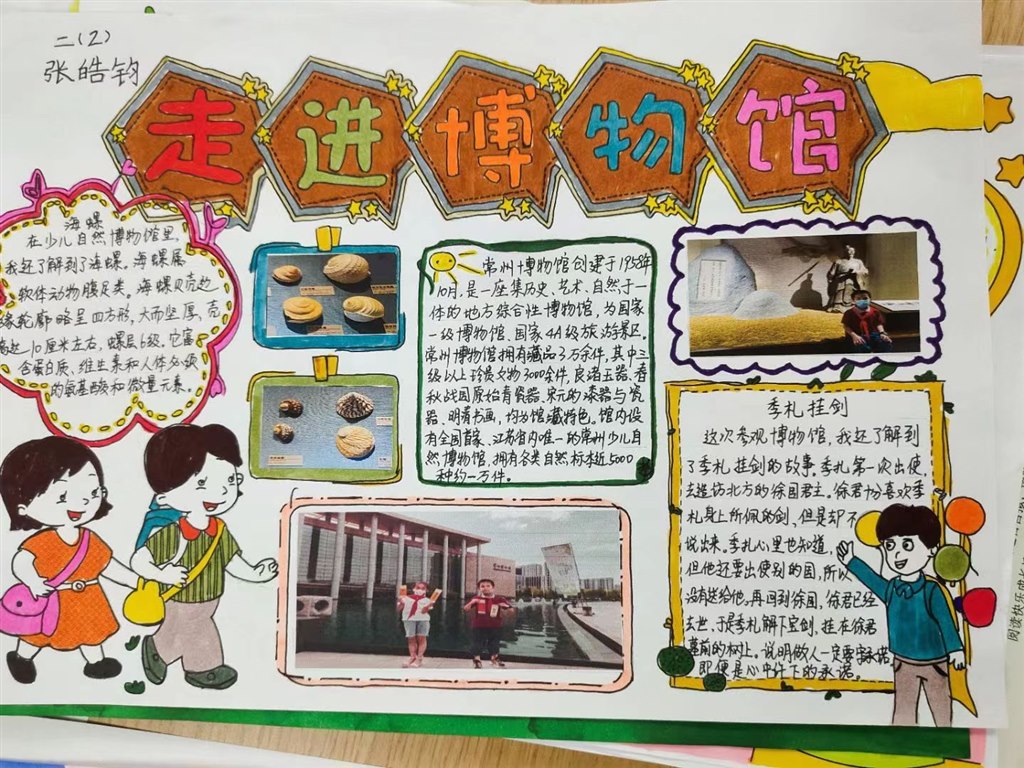 二(2)
张皓钧
走进博物馆
海螺
在少儿自然博物馆里,
我还了解到了海螺。海螺属
软体动物腹足类。海螺贝壳边
缘轮廓略呈四方形,大而坚厚,壳
高达10厘米左右,螺层6级。它富
含蛋白质、维生素和人体必须
的氨基酸和微量元素。
常州博物馆创建于1958年
10月,是一座集历史、艺术、自然于一
体的地方综合性博物馆,为国家
一级博物馆、国家4A级旅游景区。
常州博物馆拥有藏品3万余件,其中三
级以上珍贵文物3000余件,良渚玉器、春
秋战国原始青瓷器、宋元的漆器与瓷
器、明清书画,均为馆藏特色。馆内设
有全国首家、江苏省内唯一的常州少儿自
然博物馆,拥有各类自然标本近5000
种约一万件。
季札挂剑
这次参观博物馆,我还了解到
了季札挂剑的故事。季札第一次出使,
去造访北方的徐国君主。徐君十分喜欢季
札身上所佩的剑,但是却不
说出来。季札心里也知道,
但他还要出使别的国,所以
没有送给他。再回到徐国,徐君已经
去世,于是季札解下宝剑,挂在徐君
墓前的树上。说明做人一定要守承诺,
即便是心中许下的承诺。